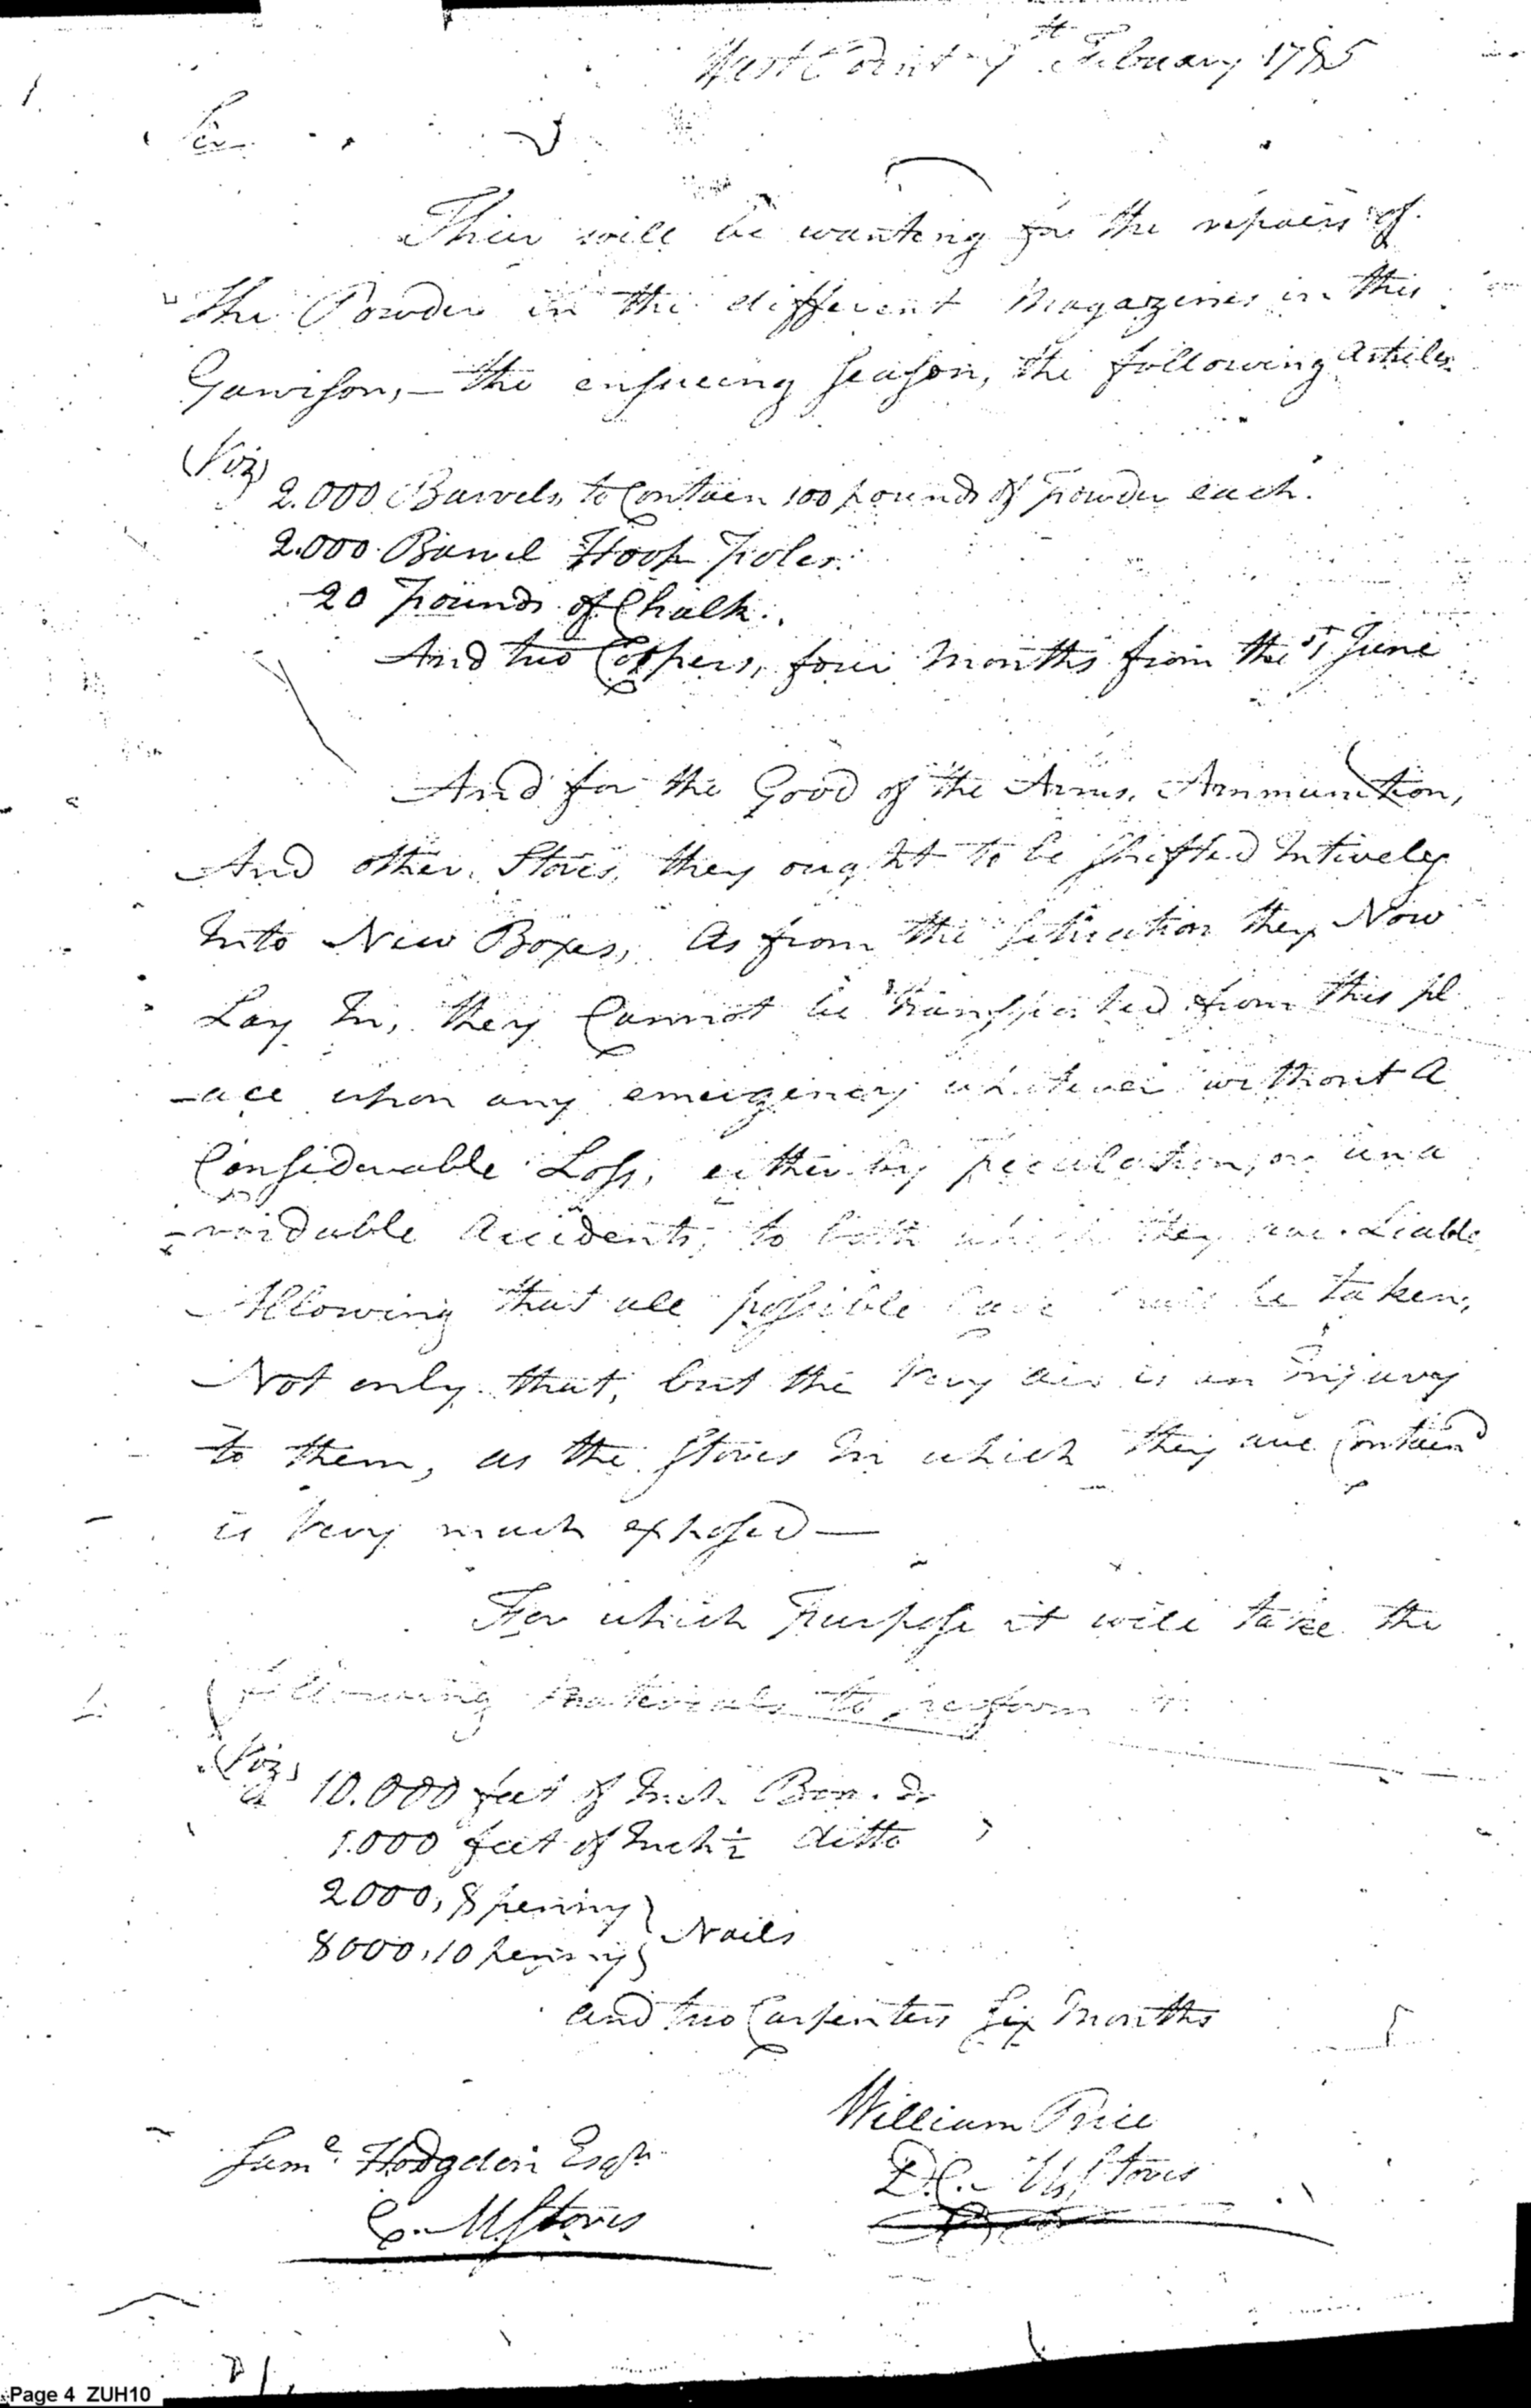 West Point 7th February 1785
Sir
Their will be wanting for the repairs of
the Powder in the different Magazines in this
Garrison, — the ensueing season, the following Articles
(Viz)
2.000 Barrels to Contain 100 pounds of powder each.
2.000 Barrel Hoop poles.
20 pounds of Chalk.
And two Coopers, four Months from the 1st June
And for the Good of the Arms, Ammunition,
And other Stores, they ought to be shifted Intirely
Into New Boxes, As from the situation they Now
Lay In, they Cannot be transported from this pl
-ace upon any emergency whatever without A
Considerable Loss, either by peculation, or una
-voidable Accidents, to both which they are Liable
Allowing that all possible Care be taken,
Not only that, but the Very air is an Injury
to them, as the Stores In which they are Contain'd
is Very much exposed —
For which Purpose it will take the
following Materials to perform it.
(Viz)
10.000 feet of Inch Boards
1.000 feet of Inch ½ ditto
2000, 8 penny }
Nails
8000, 10 penny }
and two Carpenters Six Months
William Price
D.C. M Stores
Saml. Hodgdon Esqr.
C. M Stores
Page 4 ZUH10